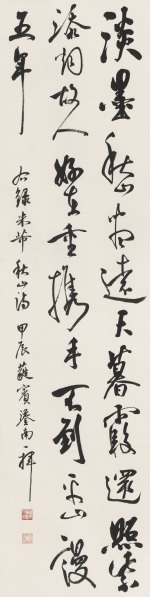 淡墨秋山畫遠天暮霞還照紫
添烟故人好在重攜手不到平山謾
五年
右錄米芾秋山詩 甲辰蕤賓 南一揮